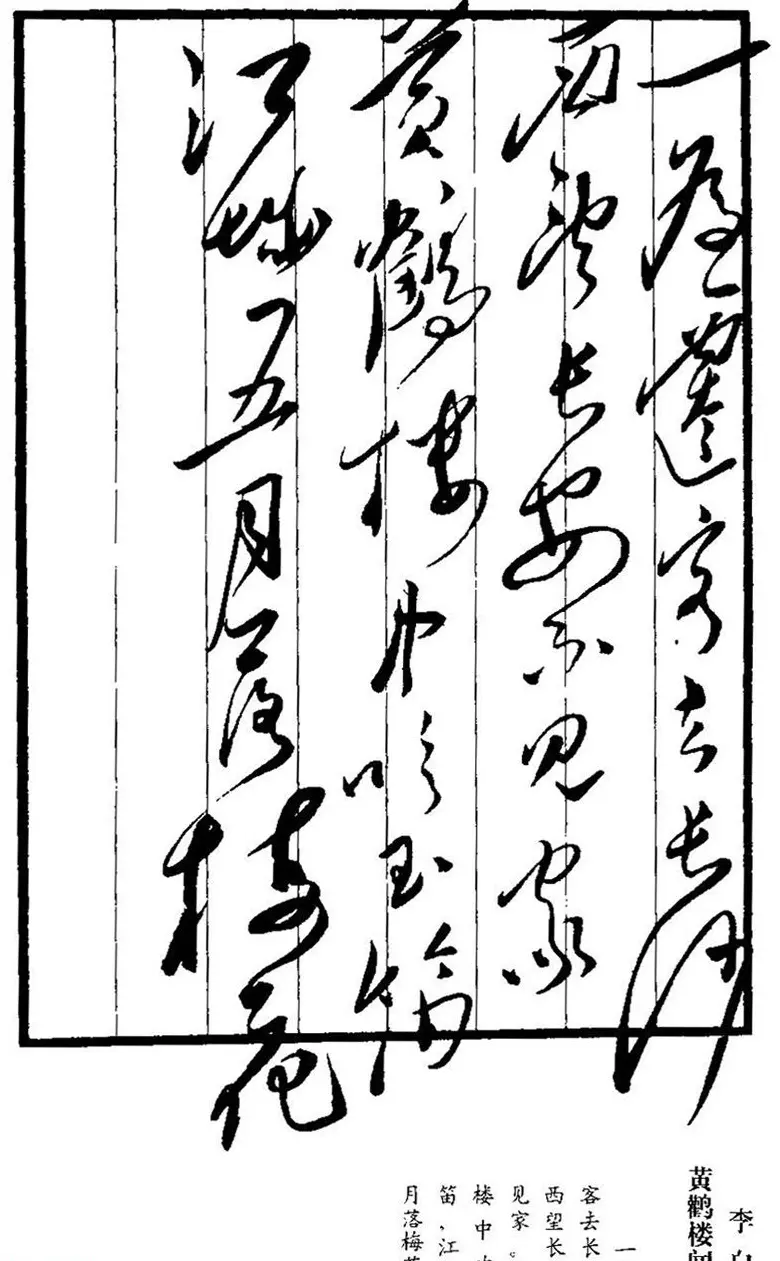 一为遷客去长沙
西望长安不见家
黄鹤楼中吹玉笛
江城五月落梅花
李白
黄鹤楼
一
客去长
西望长
见家。
楼中
笛、江
月落梅